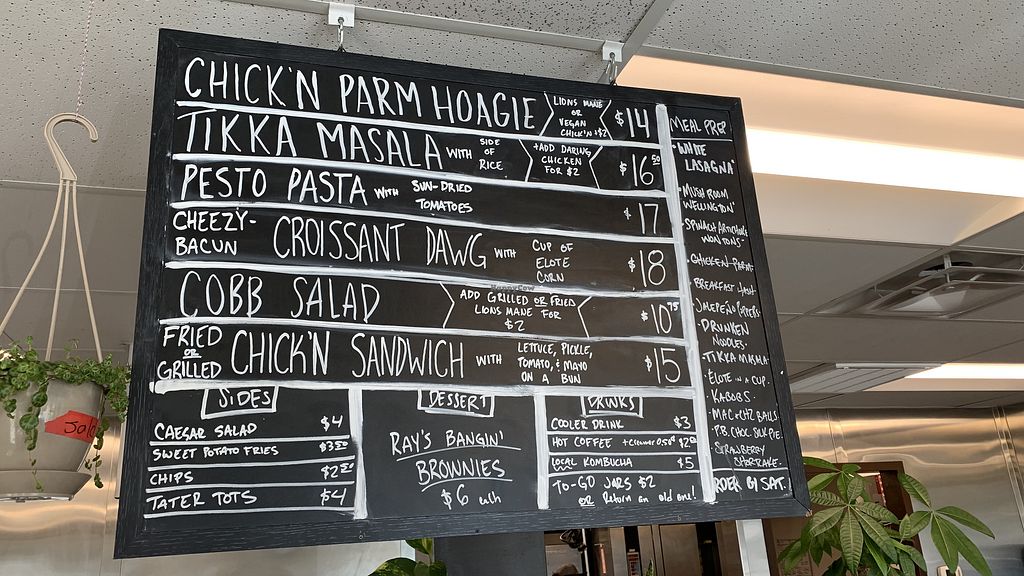 CHICK'N PARM HOAGIE
LIONS MANE
OR
VEGAN
CHICK'N +$2
$14
TIKKA MASALA WITH
SIDE
OF
RICE
+ADD DARING
CHICKEN
FOR $2
$16.50
PESTO PASTA WITH SUN-DRIED
TOMATOES
$17
CHEEZY-
BACUN
CROISSANT DAWG WITH
CUP OF
ELOTE
CORN
$18
COBB SALAD
ADD GRILLED OR FRIED
LIONS MANE FOR
$2
$10.75
FRIED
OR
GRILLED
CHICK'N SANDWICH WITH
LETTUCE, PICKLE,
TOMATO, & MAYO
ON A BUN
$15
SIDES
CAESAR SALAD $4
SWEET POTATO FRIES $3.50
CHIPS
TATER TOTS $4
DESSERT
RAY'S BANGIN'
BROWNIES
$6 each
DRINKS
COOLER DRINK $3
HOT COFFEE
LOCAL KOMBUCHA $5
TO-GO JARS $2
OR Return an old one!
MEAL PREP
LASAGNA
MUSHROOM
WELLINGTON
SPINACH ARTICHOKE
WONTONS
CHICKEN PARM
BREAKFAST HASH
DRUNKEN
NOODLES
TIKKA MASALA
ELOTE IN A CUP
KABOBS
MAC & CHZ BALLS
P.B. CHOC SILK PIE
STRAWBERRY
SHORTCAKE
ORDER BY SAT.
Sold
HappyCow